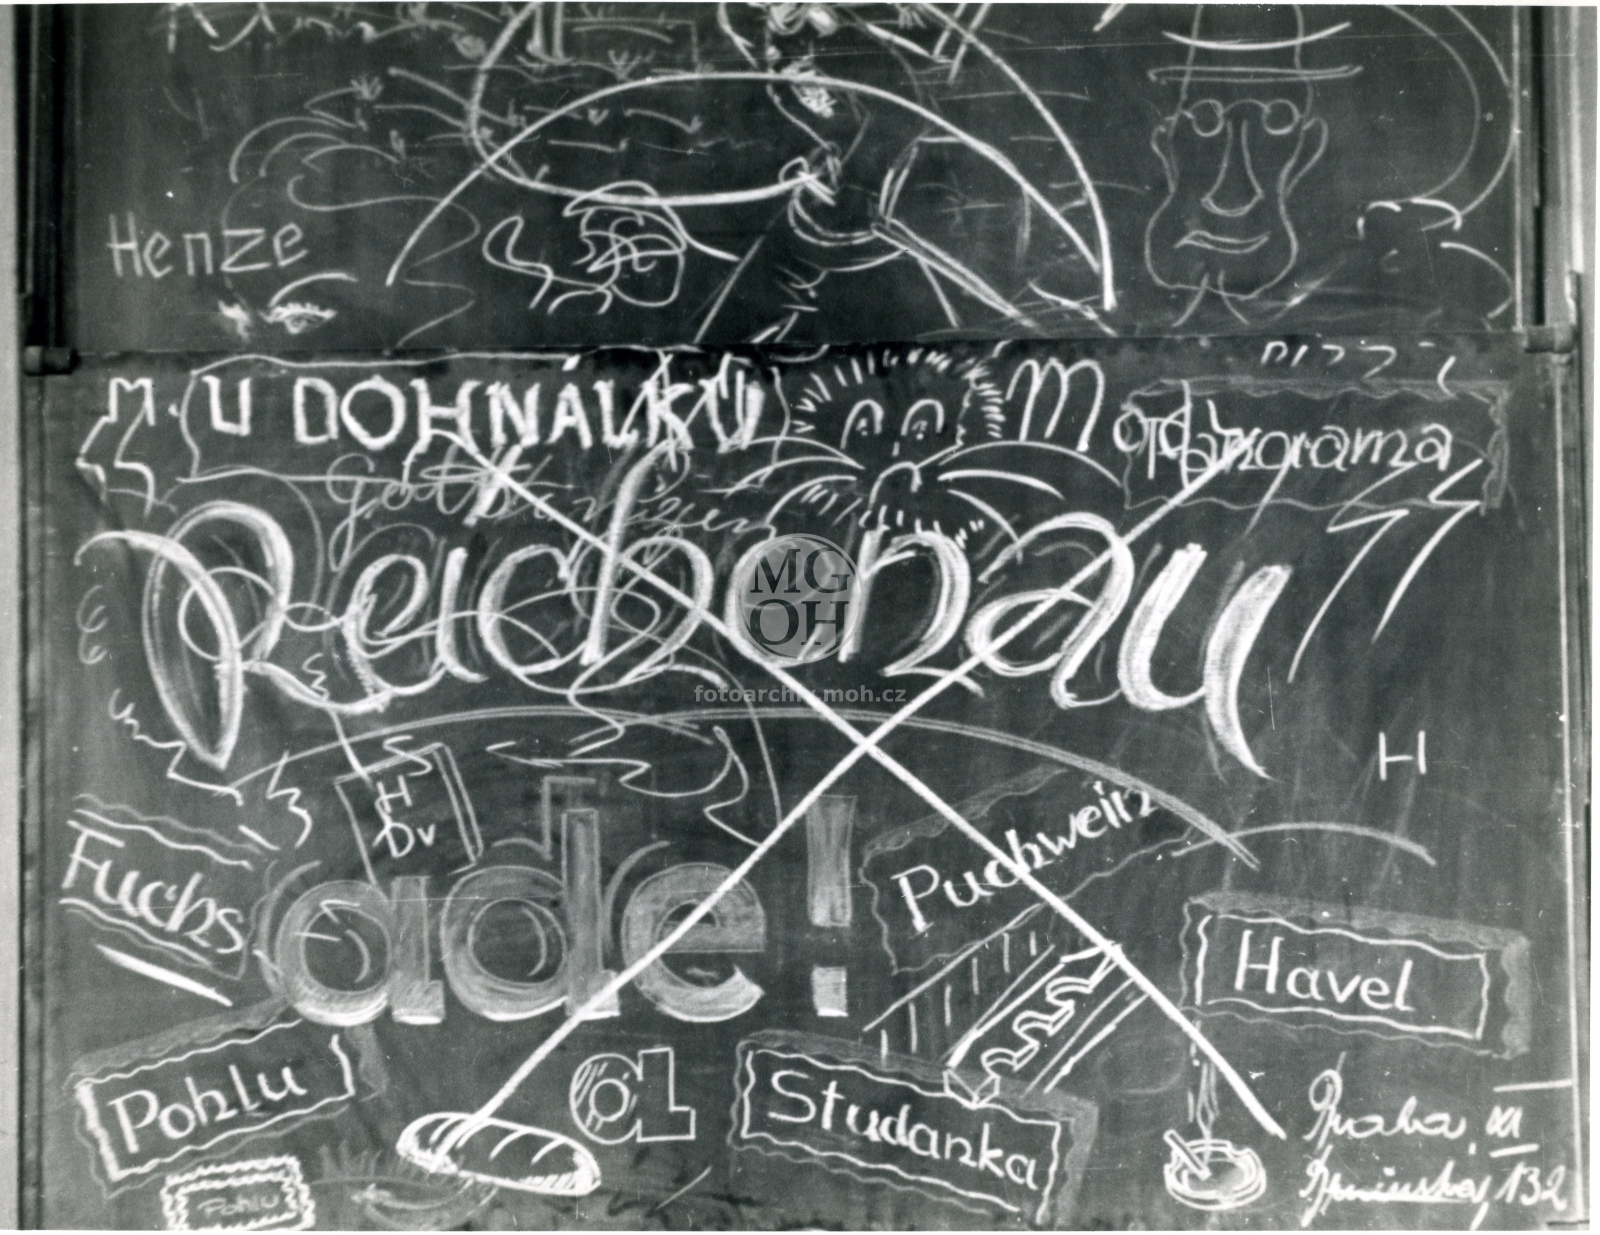 Henze
M. U DOHNÁLKŮ
M
Panorama
Reichenau
MG
OH
fotoarchiv.moh.cz
H
H
Dv
ade!
Fuchs
Puchwein
Havel
Pohlu
Studanka
Praha XI
132
Pohlu